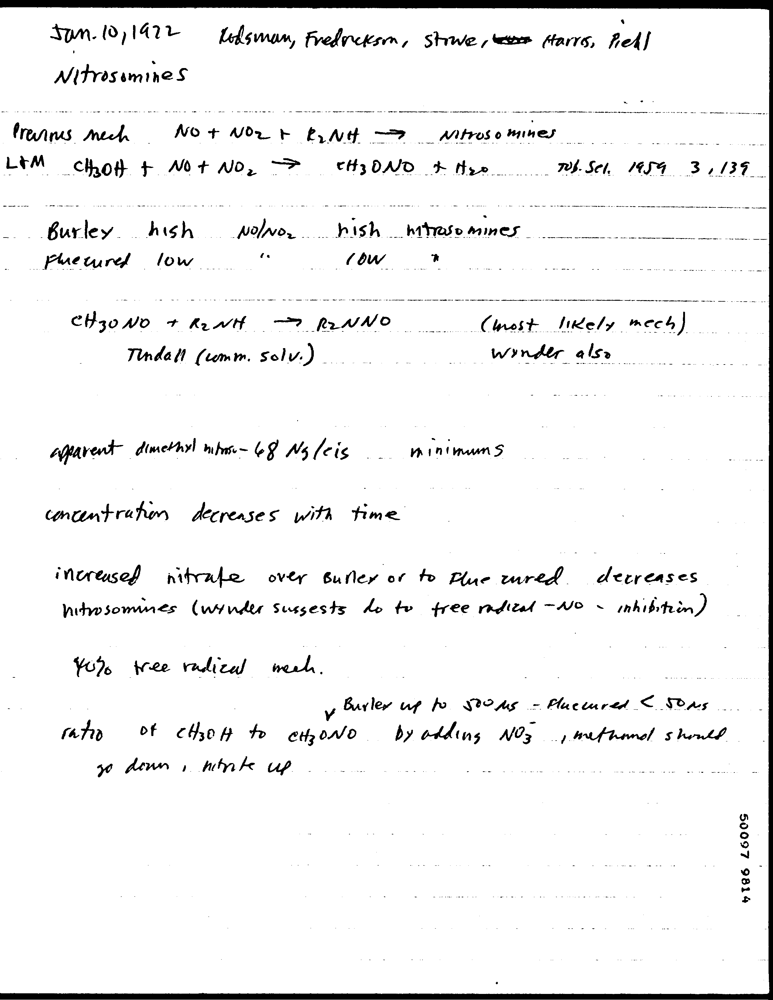 Jan. 10, 1972 Rodgman, Fredrickson, Stowe, Harris, Piehl
Nitrosomines
Previous mech NO + NO2 + R2NH → Nitrosomines
L+M CH3OH + NO + NO2 → CH3ONO + H2O Tob. Sci. 1959 3, 139
Burley high NO/NO2 high nitrosomines
Fluecured low " low "
CH3ONO + R2NH → R2NNO (most likely mech)
Tindall (comm. solv.) Wynder also
apparent dimethyl nitros- 68 Ng/cig minimums
concentration decreases with time
increased nitrate over Burley or to Flue cured decreases
nitrosomines (wynder suggests do to free radical - NO - inhibition)
40% free radical mech.
Burley up to 500 ng - Fluecured < 50 ng
ratio of CH3OH to CH3ONO by adding NO3⁻, methanol should
go down, nitrite up
50097 9814